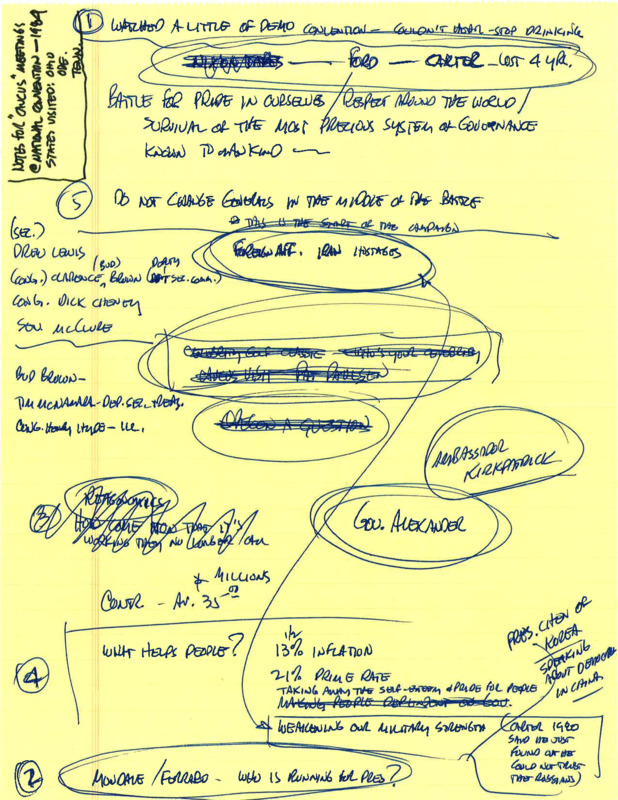 NOTES FOR "CAUCUS" MEETINGS
@ NATIONAL CONVENTION - 1984
STATES VISITED: OHIO
ORE.
TENN.
① WATCHED A LITTLE OF DEMO CONVENTION - COULDN'T HEAR - STOP DRINKING
FORD — CARTER - LOST 4 YR.
BATTLE FOR PRIDE IN OURSELVES / RESPECT AROUND THE WORLD /
SURVIVAL OF THE MOST PRECIOUS SYSTEM OF GOVERNANCE
KNOWN TO MANKIND —
⑤ DO NOT CHANGE GENERALS IN THE MIDDLE OF THE BATTLE
THIS IS THE START OF THE CAMPAIGN
(SEC.)
DREW LEWIS
FOREIGN AFF. IRAN HOSTAGES
(CONG.) CLARENCE (BUD) BROWN (DEPUTY SEC. COMM.)
CONG. DICK CHENEY
SEN. McCLURE
CELEBRITY GOLF CLASSIC - WHO'S YOUR CELEBRITY
CAUCUS VISIT PAT PAULSEN
BUD BROWN -
TIM McNAMARA - DEP. SEC. TREAS.
CONG. HENRY HYDE - ILL.
OREGON A QUESTION
AMBASSADOR
KIRKPATRICK
REAGANOMICS
③ HOW COME NOW THAT IT'S
WORKING THEY NO LONGER CALL
GOV. ALEXANDER
& MILLIONS
CONTR - AV. 35⁰⁰
④ WHAT HELPS PEOPLE? 13 1/2% INFLATION
21% PRIME RATE
TAKING AWAY THE SELF-ESTEEM & PRIDE FOR PEOPLE
MAKING PEOPLE DEPENDENT ON GOV.
WEAKENING OUR MILITARY STRENGTH
PRES. CHEN OF
KOREA
SPEAKING
ABOUT
IN CHINA
(CARTER 1980
SAID HE JUST
FOUND OUT HE
COULD NOT TRUST
THE RUSSIANS)
② MONDALE / FERRARO - WHO IS RUNNING FOR PRES?